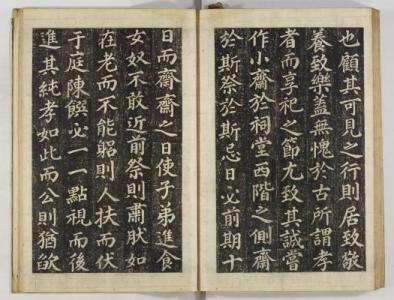 也顧其可見之行則居致敬
養致樂盖無愧於古所謂孝
者而享祀之節尤致其誠嘗
作小齋於祠堂西階之側齋
於斯祭於斯忌日必前期十
日而齋齋之日使子弟進食
女奴不敢近前祭則肅肰如
在老而不能躬則人扶而伏
于庭陳饌必一一點視而後
進其純孝如此而公則猶欿